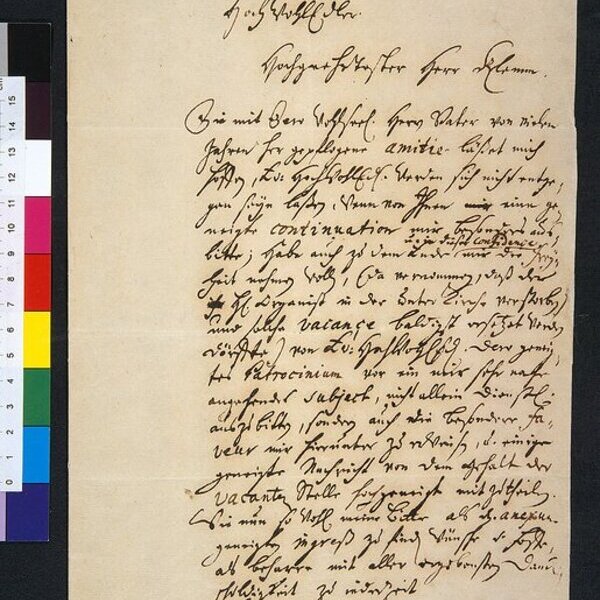 HochWohlEdler.
Hochgeehrtester Herr Klemm.
Die mit Dero Wohlseel. Herrn Vater von vielen
Jahren her gepflogene amitie läßet mich
hoffen, Ew: HochWohlEdl. werden sich nicht entge-
gen seyn laßen, wenn von Ihnen eine ge-
neigte continuation mir besonders aus-
u. in dieser Confidence
bitte; Habe auch zu dem Ende mir die Frey-
heit nehmen wollen, (da vernommen, daß der
H. Organist in der Unter Kirche verstorben,
und solche vacance baldigst ersetzet werden
dörffte) von Ew: HochWohlEdl. Dero geneig-
tes Patrocinium vor ein mir sehr nahe
angehendes Subject, nicht allein dienstl.
auszubitten, sondern auch die besondere Fa-
veur mir hierunter zu erweisen, u. einige
geneigte Nachricht von dem Gehalt der
vacanten Stelle hochgeneigt mitzutheilen.
Die nun so wohl meine Bitte als
geneigten ingress zu finden wünsche u. hoffe,
als beharre mit aller ergebensten Danck-
schuldigkeit zu jederzeit
0 1 2 3 4 5 6 7 8 9 12 13 14 15 cm